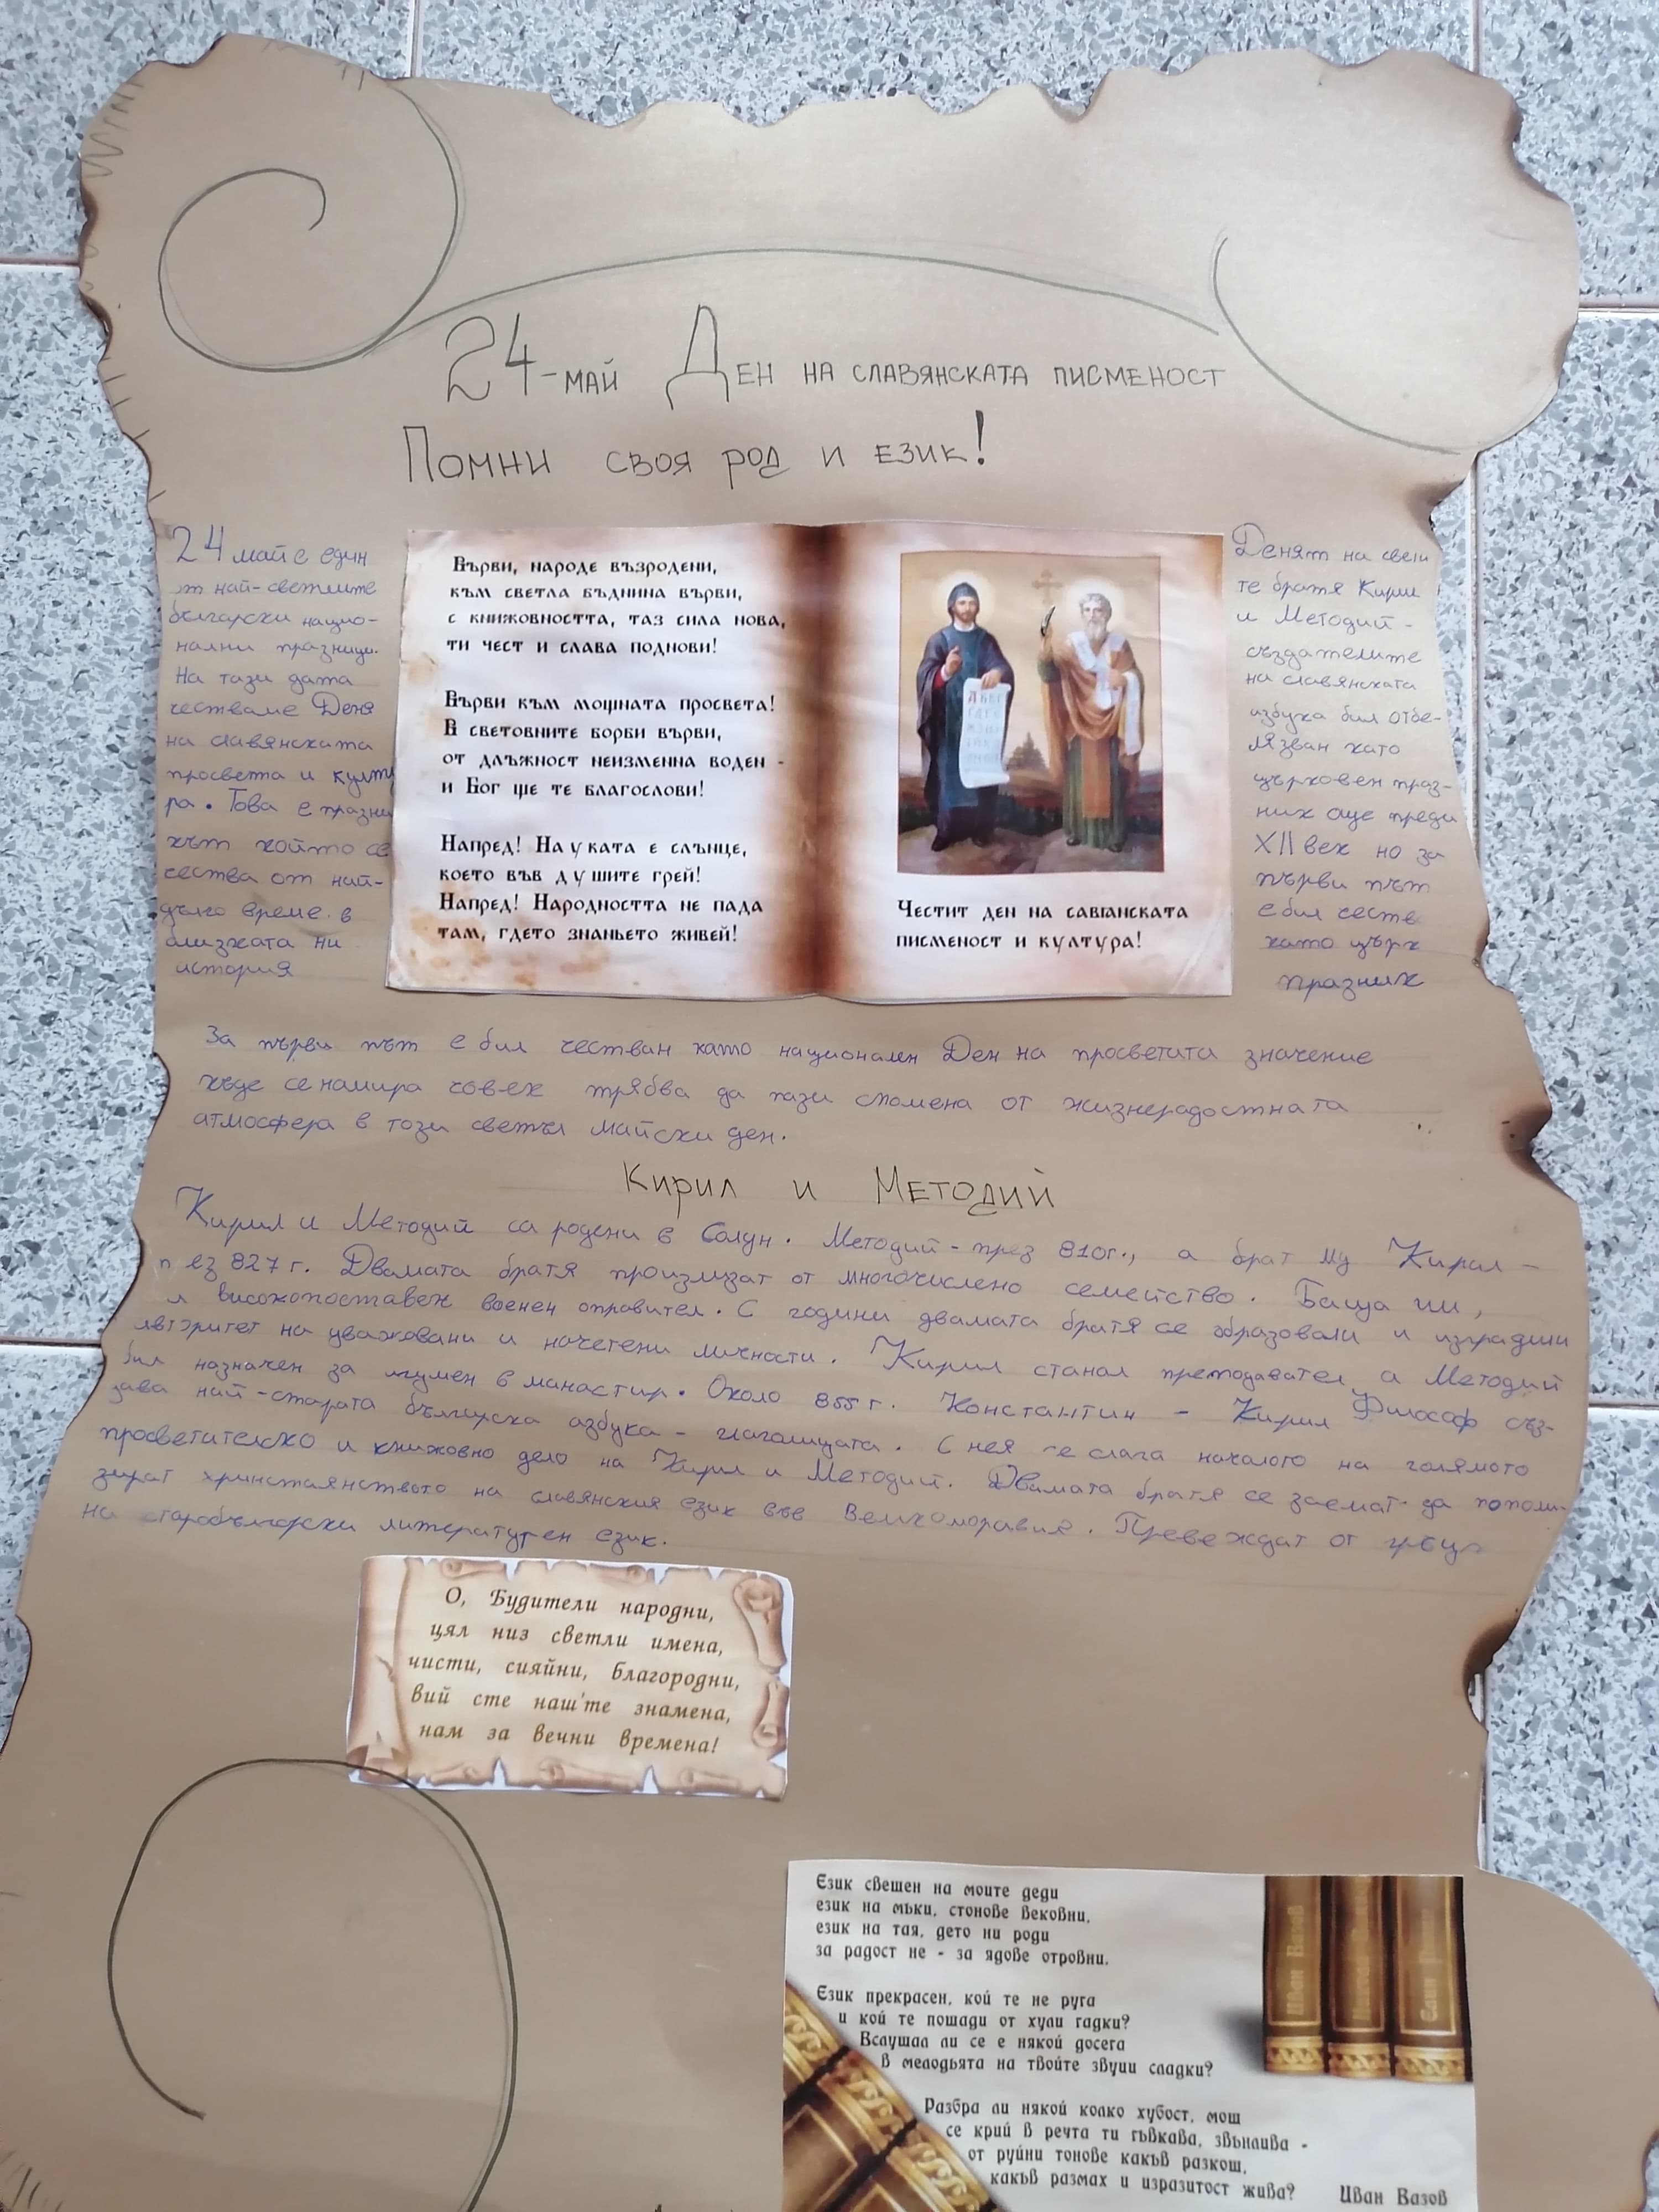 24-май Ден на славянската писменост
Помни своя род и език!
24 май е един
от най-светлите
български нацио-
нални празници.
На тази дата
честваме Деня
на славянската
просвета и култу
ра. Това е празни
кът който се
чества от най-
дълго време в
близката ни
история
Върви, народе възродени,
към светла бъднина върви,
с книжовността, таз сила нова,
ти чест и слава поднови!
Върви към мощната просвета!
В световните борби върви,
от длъжност неизменна воден -
и Бог ще те благослови!
Напред! Науката е слънце,
което във душите грей!
Напред! Народността не пада
там, гдето знаньето живей!
Честит ден на савянската
писменост и култура!
Денят на свети
те братя Кирил
и Методий -
създателите
на славянската
азбука бил отбе-
лязван като
църковен праз-
ник още преди
XII век но за
първи път
е бил честв
като църк
празник
За първи път е бил честван като национален Ден на просветата значение
къде се намира човек трябва да пази спомена от жизнерадостната
атмосфера в този светъл майски ден.
Кирил и Методий
Кирил и Методий са родени в Солун. Методий - през 810г., а брат му Кирил -
п ез 827 г. Двамата братя произлизат от многочислено семейство. Баща им,
л високопоставен военен управител. С години двамата братя се образовали и изградили
авторитет на уважавани и начетени личности. Кирил станал преподавател, а Методий
бил назначен за игумен в манастир. Около 855 г. Константин - Кирил Философ съз-
дава най-старата българска азбука - глаголицата. С нея се слага началото на голямото
просветителско и книжовно дело на Кирил и Методий. Двамата братя се заемат да попули-
зират християнството на славянския език във Великоморавия. Превеждат от гръцк
на старобългарски литературен език.
О, Будители народни,
цял низ светли имена,
чисти, сияйни, Благородни,
вий сте наш'те знамена,
нам за вечни времена!
Език свещен на моите деди
език на мъки, стонове вековни,
език на тая, дето ни роди
за радост не - за ядове отровни.
Език прекрасен, кой те не руга
и кой те пощади от хули гадки?
Вслушал ли се е някой досега
в мелодьята на твойте звуци сладки?
Разбра ли някой колко хубост, мощ
се крий в речта ти гъвкава, звънлива -
от руйни тонове какъв разкош,
какъв размах и изразитост жива?
Иван Вазов
Иван Вазов
Елин Пелин